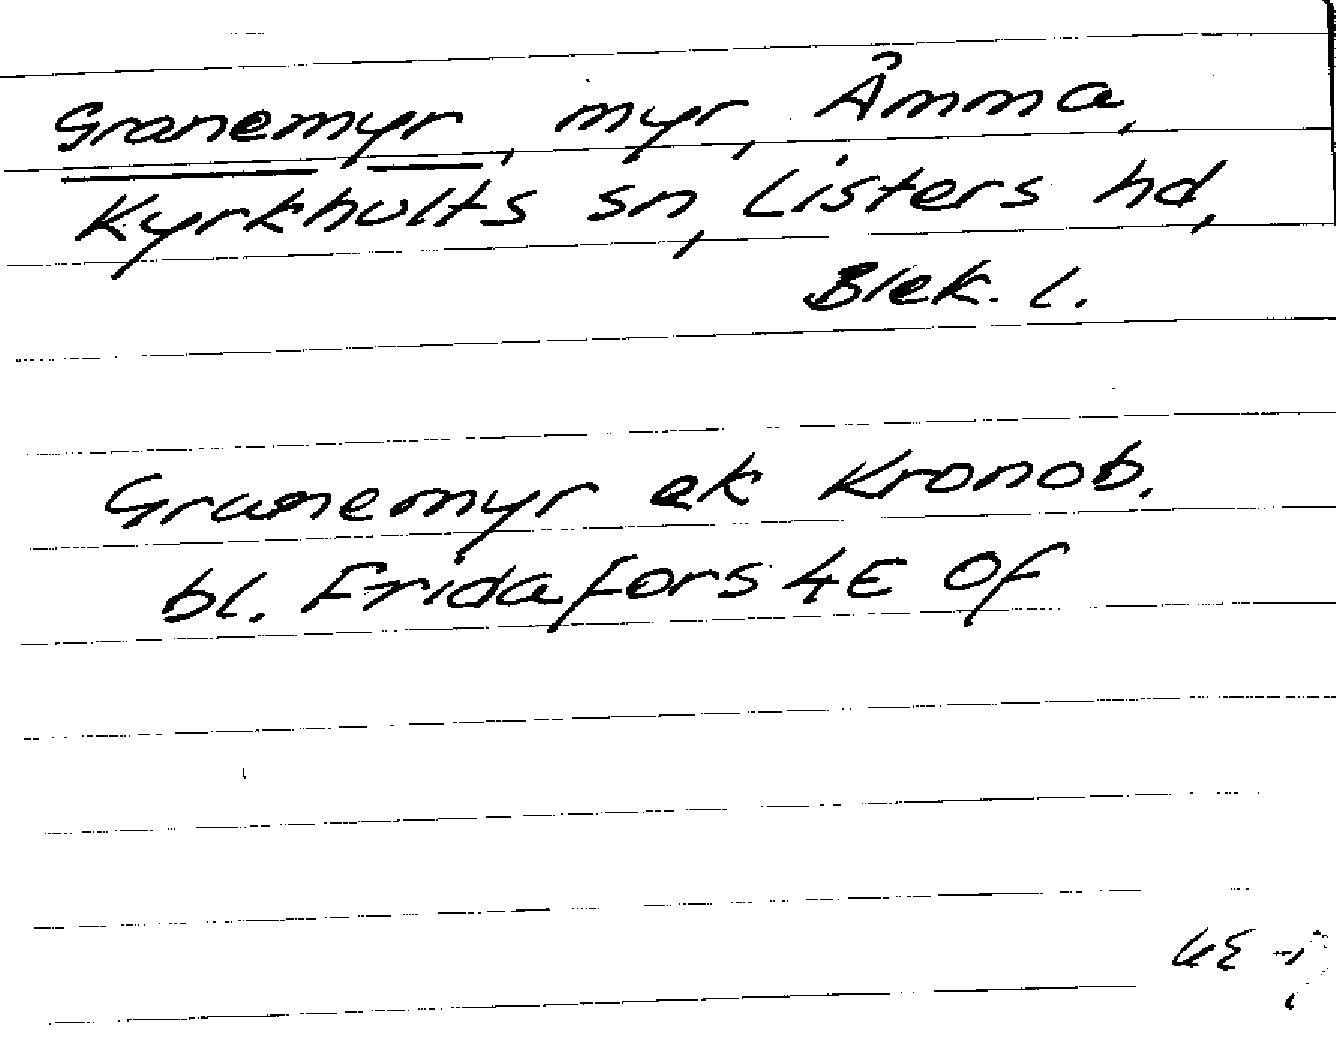 Granemyr, myr, Åmma,
Kyrkhults sn, Listers hd,
Blek. l.
Granemyr ek Kronob.
bl. Fridafors 4E 0f